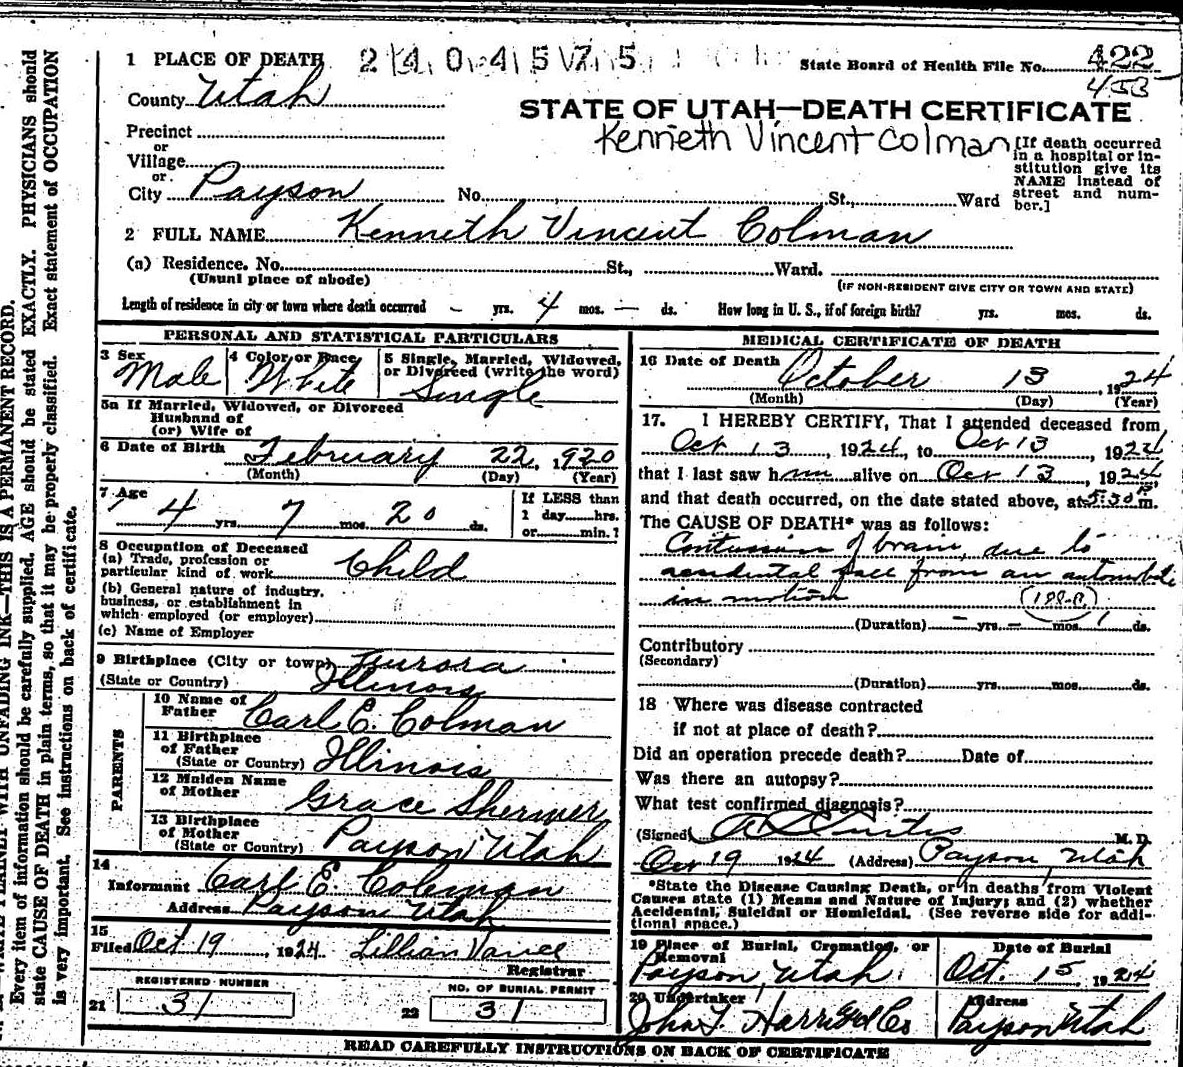 1 PLACE OF DEATH 2404575
State Board of Health File No. 422
453
County Utah
STATE OF UTAH—DEATH CERTIFICATE
Kenneth Vincent Colman
Precinct
or
Village
or
City Payson No. St., Ward
[If death occurred
in a hospital or in-
stitution give its
NAME instead of
street and num-
ber.]
2 FULL NAME Kenneth Vincent Colman
(a) Residence. No. St., Ward.
(Usual place of abode) (IF NON-RESIDENT GIVE CITY OR TOWN AND STATE)
Length of residence in city or town where death occurred – yrs. 4 mos. – ds. How long in U. S., if of foreign birth? yrs. mos. ds.
PERSONAL AND STATISTICAL PARTICULARS
3 Sex 4 Color or Race 5 Single, Married, Widowed,
or Divorced (write the word)
Male White Single
5a If Married, Widowed, or Divorced
Husband of
(or) Wife of
6 Date of Birth February 22, 1920
(Month) (Day) (Year)
7 Age
4 yrs. 7 mos. 20 ds.
If LESS than
1 day hrs.
or min.?
8 Occupation of Deceased
(a) Trade, profession or
particular kind of work Child
(b) General nature of industry,
business, or establishment in
which employed (or employer)
(c) Name of Employer
9 Birthplace (City or town) Aurora
(State or Country) Illinois
PARENTS
10 Name of
Father Carl E. Colman
11 Birthplace
of Father
(State or Country) Illinois
12 Maiden Name
of Mother Grace Shermer
13 Birthplace
of Mother
(State or Country) Payson Utah
14
Informant Carl E. Coleman
Address Payson Utah
15
Filed Oct 19, 1924 Lillian Vance
Registrar
REGISTERED NUMBER
21 31
NO. OF BURIAL PERMIT
22 31
MEDICAL CERTIFICATE OF DEATH
16 Date of Death October 13, 1924
(Month) (Day) (Year)
17. I HEREBY CERTIFY, That I attended deceased from
Oct 13, 1924, to Oct 13, 1924
that I last saw him alive on Oct 13, 1924,
and that death occurred, on the date stated above, at 5:30 P m.
The CAUSE OF DEATH* was as follows:
Contusion of brain, due to
accidental fall from an automobile
in motion (188-a)
(Duration) – yrs. – mos. 1 ds.
Contributory
(Secondary)
(Duration) yrs. mos. ds.
18 Where was disease contracted
if not at place of death?
Did an operation precede death? Date of
Was there an autopsy?
What test confirmed diagnosis?
(Signed) A L Curtis M. D.
Oct 19 1924 (Address) Payson, Utah
*State the Disease Causing Death, or in deaths from Violent
Causes state (1) Means and Nature of Injury; and (2) whether
Accidental, Suicidal or Homicidal. (See reverse side for addi-
tional space.)
19 Place of Burial, Cremation, or
Removal
Payson, Utah.
Date of Burial
Oct. 15, 1924
20 Undertaker
John T. Harris Co
Address
Payson Utah
READ CAREFULLY INSTRUCTIONS ON BACK OF CERTIFICATE
WRITE PLAINLY WITH UNFADING INK—THIS IS A PERMANENT RECORD.
Every item of information should be carefully supplied. AGE should be stated EXACTLY. PHYSICIANS should
state CAUSE OF DEATH in plain terms, so that it may be properly classified. Exact statement of OCCUPATION
is very important. See instructions on back of certificate.